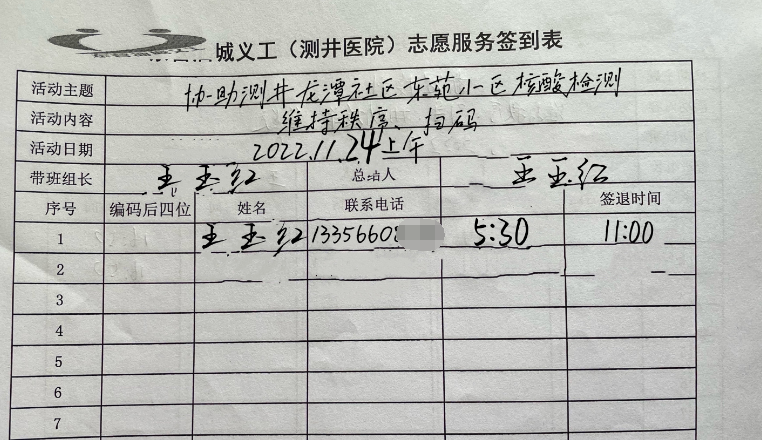 城义工（测井医院）志愿服务签到表
活动主题 协助测井龙潭社区东苑小区核酸检测
活动内容 维持秩序、扫码
活动日期 2022.11.24上午
带班组长 王玉红 总结人 王玉红
序号 编码后四位 姓名 联系电话 签退时间
1 王玉红 1335660 5:30 11:00
2
3
4
5
6
7